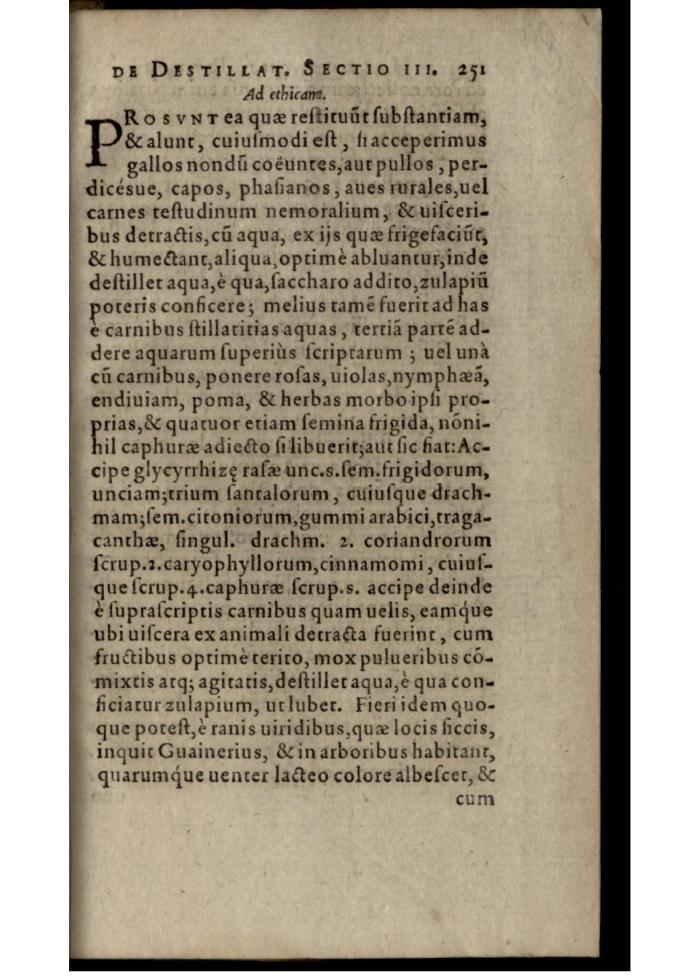 DE DESTILLAT. SECTIO III. 251
Ad ethicam.
PROSVNT ea quæ restituūt substantiam,
& alunt, cuiusmodi est, si acceperimus
gallos nondū coëuntes,aut pullos, per-
dicésue, capos, phasianos, aues rurales,uel
carnes testudinum nemoralium, & uisceri-
bus detractis,cū aqua, ex ijs quæ frigefaciūt,
& humectant,aliqua,optimè abluantur,inde
destillet aqua,è qua,saccharo addito,zulapiū
poteris conficere; melius tamē fuerit ad has
è carnibus stillatitias aquas, tertiā partē ad-
dere aquarum superiùs scriptarum; uel unà
cū carnibus, ponere rosas, uiolas,nymphæā,
endiuiam, poma, & herbas morbo ipsi pro-
prias,& quatuor etiam semina frigida, nōni-
hil caphuræ adiecto si libuerit;aut sic fiat:Ac-
cipe glycyrrhizę rasæ unc.s.sem.frigidorum,
unciam;trium santalorum, cuiusque drach-
mam;sem.citoniorum,gummi arabici,traga-
canthæ, singul. drachm. 2. coriandrorum
scrup.2.caryophyllorum,cinnamomi, cuius-
que scrup.4.caphuræ scrup.s. accipe deinde
è suprascriptis carnibus quam uelis, eamq́ue
ubi uiscera ex animali detracta fuerint, cum
fructibus optimè terito, mox pulueribus cō-
mixtis atq; agitatis,destillet aqua,è qua con-
ficiatur zulapium, ut lubet. Fieri idem quo-
que potest,è ranis uiridibus,quæ locis siccis,
inquit Guainerius, & in arboribus habitant,
quarumq́ue uenter lacteo colore albescet, &
cum